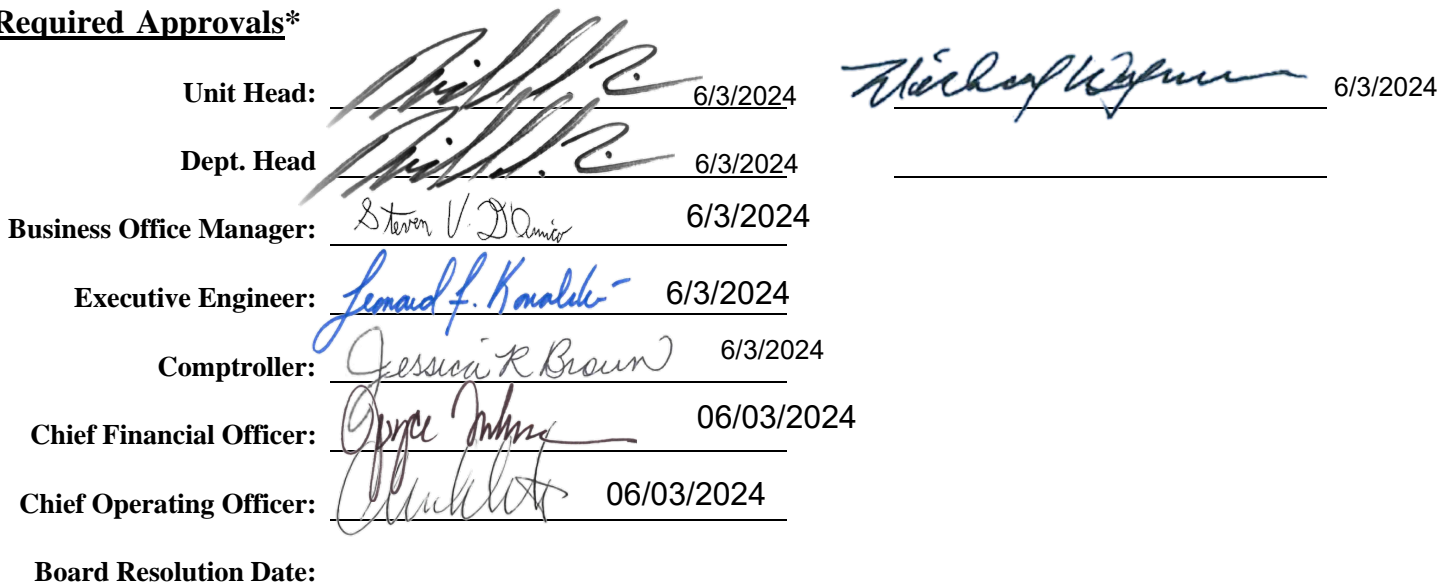 Required Approvals*
Unit Head: 6/3/2024 6/3/2024
Dept. Head 6/3/2024
Business Office Manager: Steven V. D'Amico 6/3/2024
Executive Engineer: Leonard F. Kowalski 6/3/2024
Comptroller: Jessica R Brown 6/3/2024
Chief Financial Officer: Joyce 06/03/2024
Chief Operating Officer: 06/03/2024
Board Resolution Date: